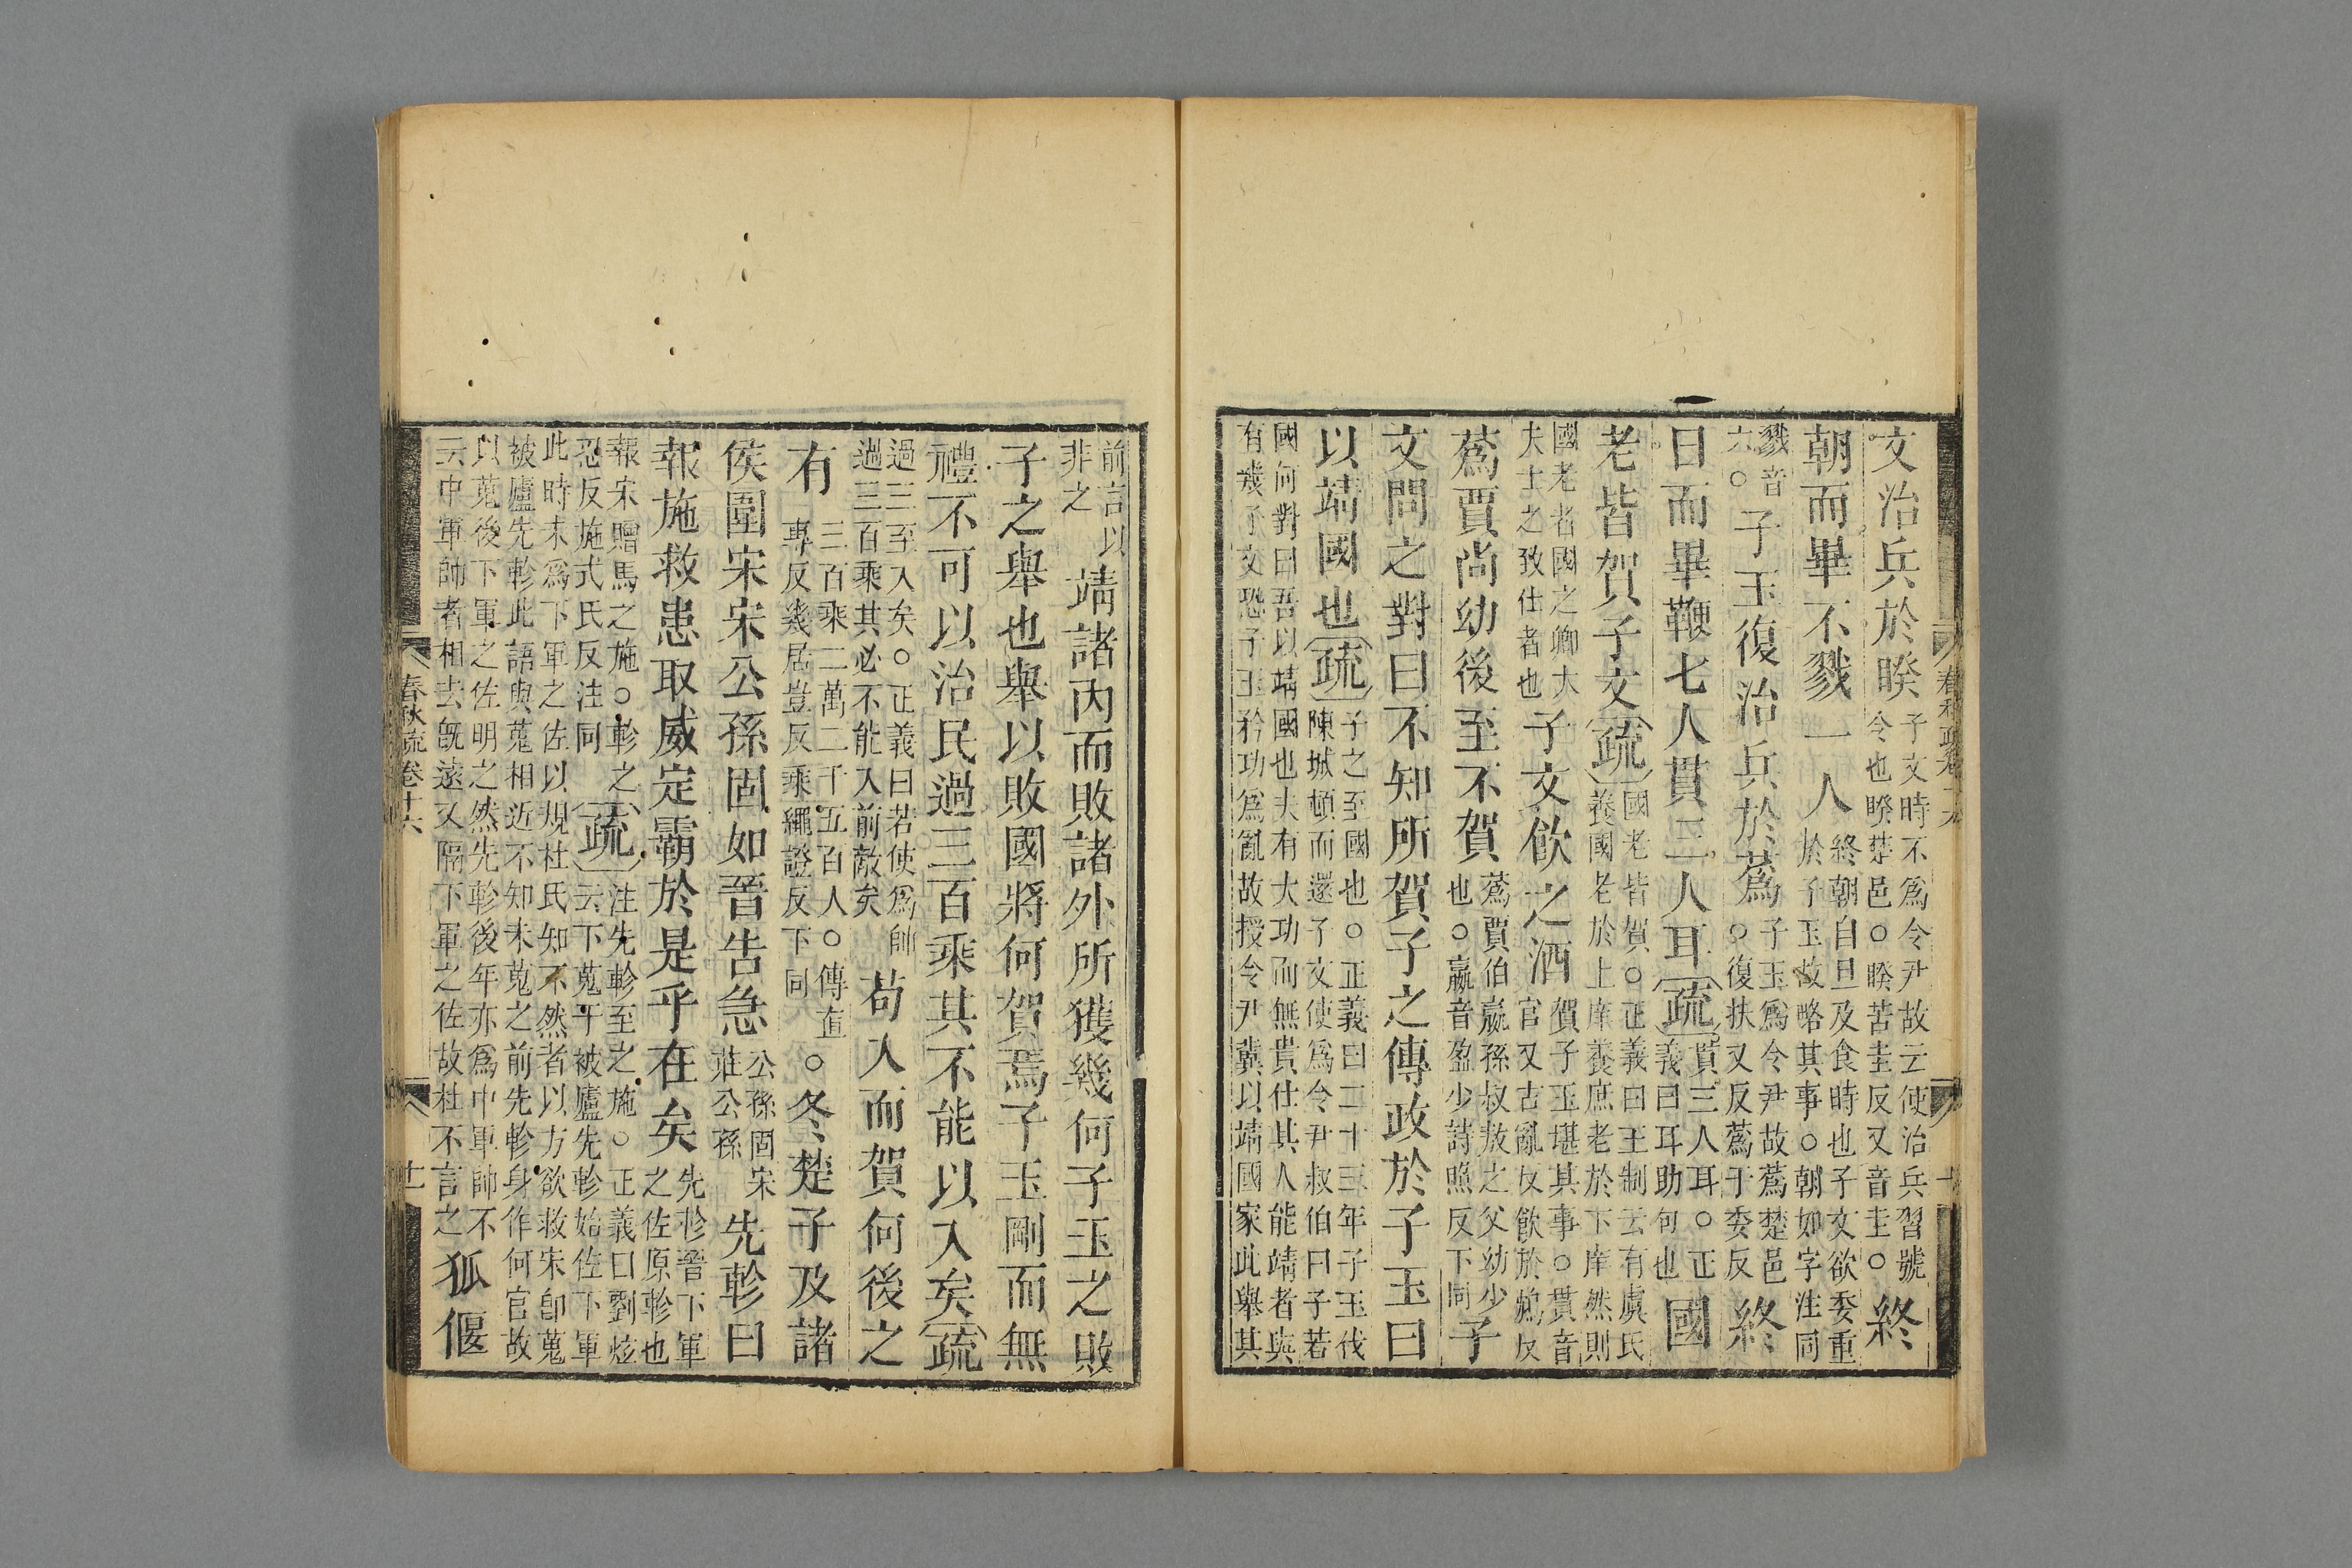 文治兵於睽子文時不爲令尹故云使治兵習號令也睽楚邑○睽苦圭反又音圭○終
朝而畢不戮一人終朝自旦及食時也子文欲委重於子玉故略其事○朝如字注同
戮音六○子玉復治兵於蒍子玉爲令尹故蒍楚邑○復扶又反蒍于委反終
日而畢鞭七人貫三人耳疏貫三人耳○正義曰耳助句也國
老皆賀子文疏國老皆賀○正義曰王制云有虞氏養國老於上庠養庶老於下庠然則
國老者國之卿大夫士之致仕者也子文飲之酒賀子玉堪其事○貫音官又古亂反飲於鴆反
蒍賈尚幼後至不賀蒍賈伯嬴孫叔敖之父幼少也○嬴音盈少詩照反下同子
文問之對曰不知所賀子之傳政於子玉曰
以靖國也疏子之至國也○正義曰二十三年子玉伐陳城頓而還子文使爲令尹叔伯曰子若
國何對曰吾以靖國也夫有大功而無貴仕其人能靖者與有幾子文恐子玉矜功爲亂故授令尹冀以靖國家此舉其
前言以非之靖諸內而敗諸外所獲幾何子玉之敗
子之舉也舉以敗國將何賀焉子玉剛而無
禮不可以治民過三百乘其不能以入矣疏
過三至入矣○正義曰若使爲帥過三百乘其必不能入前敵矣苟入而賀何後之
有三百乘二萬二千五百人○傳直專反幾居豈反乘繩證反下同○冬楚子及諸
侯圍宋宋公孫固如晉告急公孫固宋莊公孫先軫曰
報施救患取威定霸於是乎在矣先軫晉下軍之佐原軫也
報宋贈馬之施○軫之忍反施式氏反注同疏注先軫至之施○正義曰劉炫云下蒐于被廬先軫始佐下軍
此時未爲下軍之佐以規杜氏知不然者以方欲救宋卽蒐被廬先軫此語與蒐相近不知未蒐之前先軫身作何官故
以蒐後下軍之佐明之然先軫後年亦爲中軍帥不云中軍帥者相去旣遠又隔下軍之佐故杜不言之狐偃
春秋疏卷十六
十一